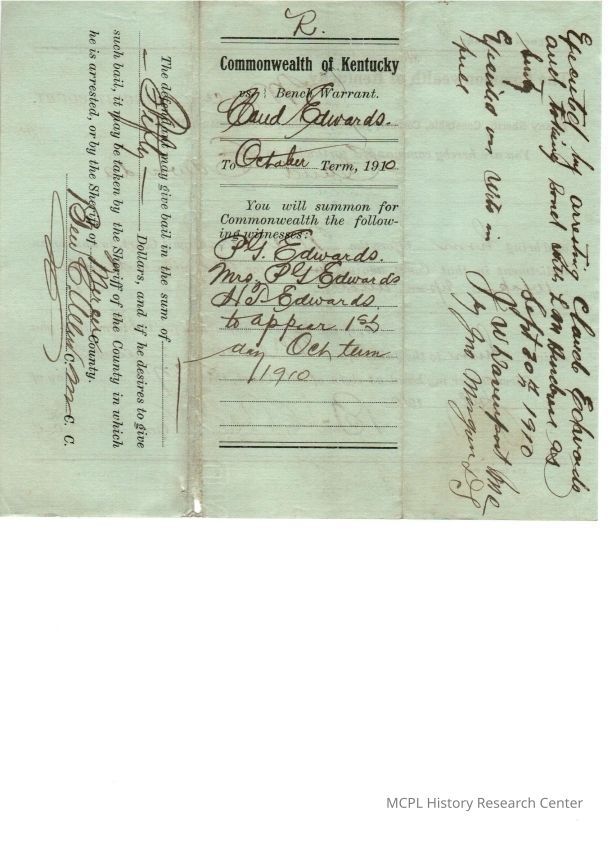 The defendant may give bail in the sum of
— Fifty — Dollars, and if he desires to give
such bail, it may be taken by the Sheriff of the County in which
he is arrested, or by the Sheriff of Mercer County.
Ben C Allen C. M C. C.
R.
Commonwealth of Kentucky
vs. } Bench Warrant.
Claud Edwards.
To October Term, 1910
You will summon for
Commonwealth the follow-
ing witnesses:
P.G. Edwards.
Mrs. P G Edwards
H. T. Edwards
to appear 1st
day Oct term
1910
Executed by arresting Claude Edwards
and taking bond with L M as
surety Sept 20th 1910
J W Davenport SMC
Executed on witn in
full By Jno Morgan DS
MCPL History Research Center